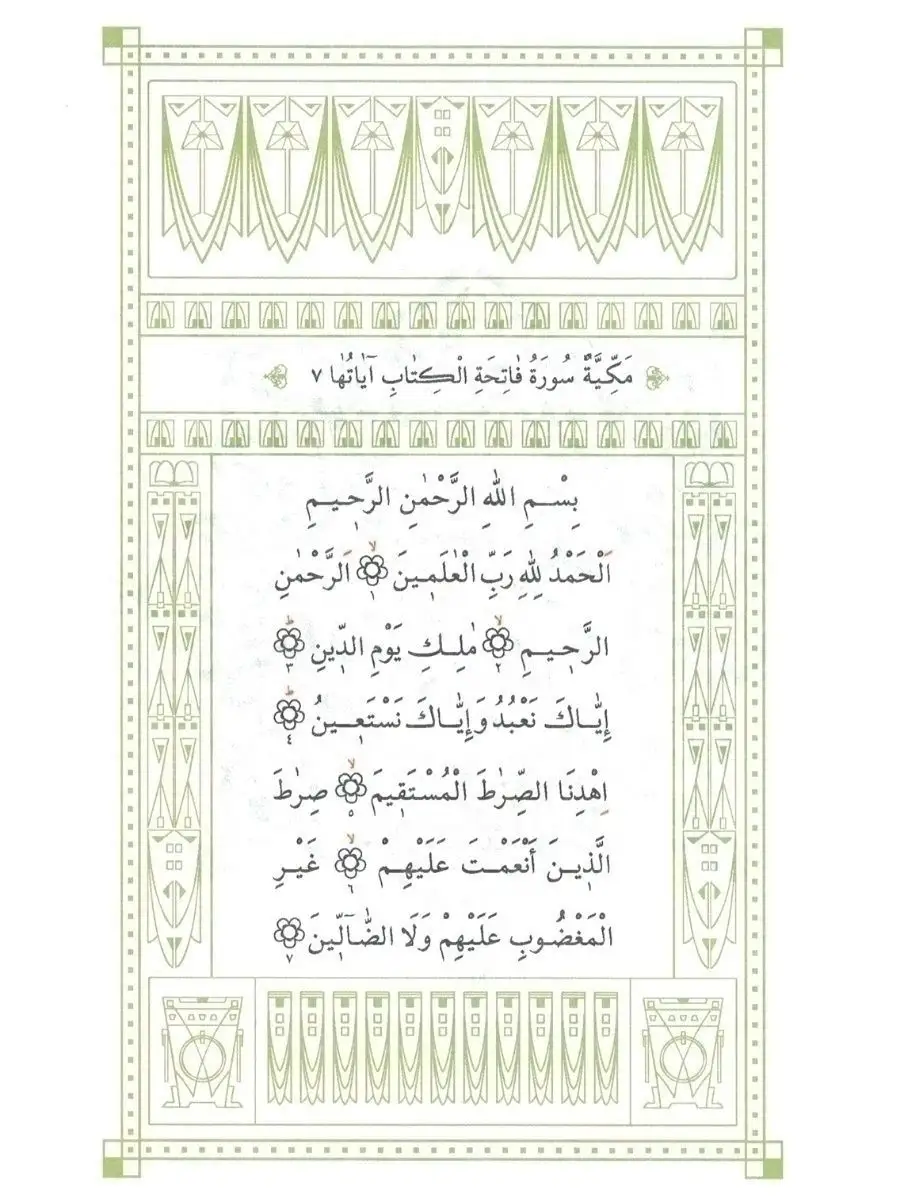 مَكِّيَّةٌ سُورَةُ فَاتِحَةِ الْكِتٰابِ آيٰاتُهٰا ٧
بِسْمِ اللهِ الرَّحْمٰنِ الرَّحٖيمِ
اَلْحَمْدُ لِلّٰهِ رَبِّ الْعٰالَمٖينَ ۙ ١ اَلرَّحْمٰنِ
الرَّحٖيمِ ۙ ٢ مٰلِكِ يَوْمِ الدّٖينِ ؕ ٣
إِيّٰاكَ نَعْبُدُ وَإِيّٰاكَ نَسْتَعٖينُ ؕ ٤
اِهْدِنَا الصِّرٰطَ الْمُسْتَقٖيمَ ۙ ٥ صِرٰطَ
الَّذٖينَ أَنْعَمْتَ عَلَيْهِمْ ۙ ٦ غَيْرِ
الْمَغْضُوبِ عَلَيْهِمْ وَلَا الضّٰآلّٖينَ ٧